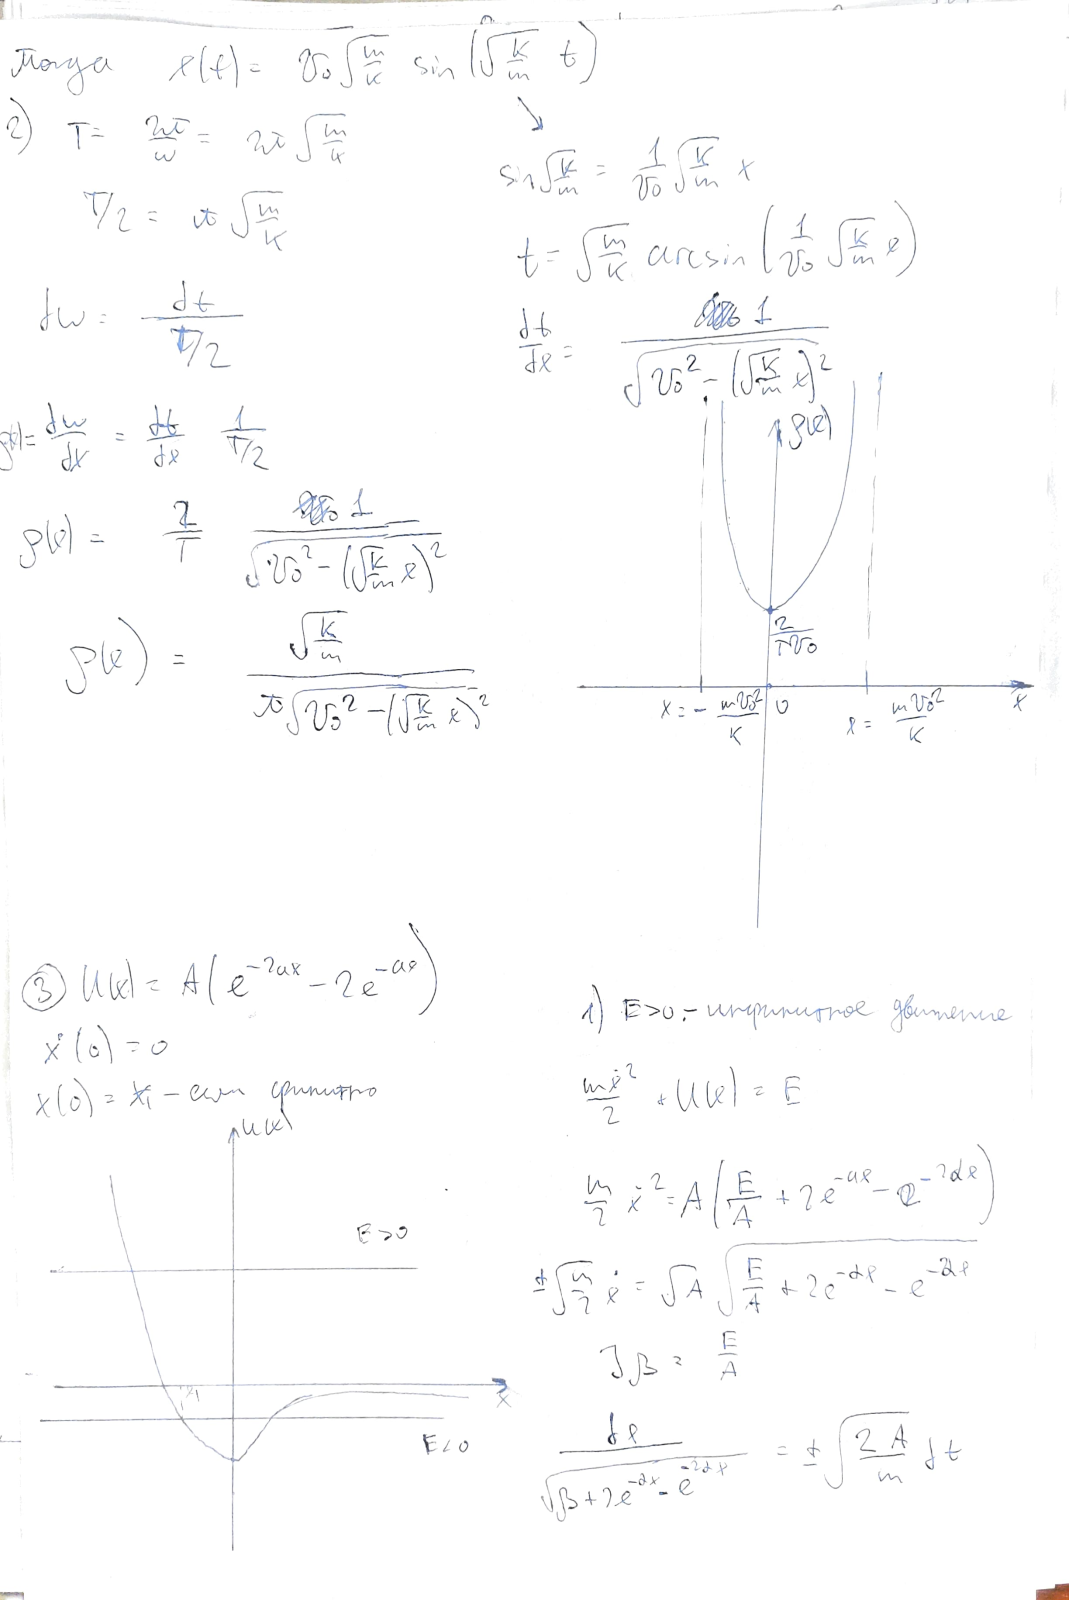 Тогда x(t) = v₀ √(m/k) sin (√(k/m) t)
2) T = 2π/ω = 2π √(m/k)
T/2 = π √(m/k)
dw = dt / (T/2)
ρ(x) = dw/dx = dt/dx 1/(T/2)
ρ(x) = 2/T 1/√(v₀² - (√(k/m) x)²)
ρ(x) = √(k/m) / (π√(v₀² - (√(k/m) x)²))
sin √(k/m) = 1/v₀ √(k/m) x
t = √(m/k) arcsin (1/v₀ √(k/m) x)
dt/dx = 1/√(v₀² - (√(k/m) x)²)
ρ(x)
2/(Tv₀)
x = - mv₀²/k
0
x = mv₀²/k
x
③ U(x) = A(e^(-2αx) - 2e^(-αx))
ẋ(0) = 0
x(0) = x₁ - если финитно
U(x)
E>0
x₁
x
E<0
1) E>0 - инфинитное движение
mẋ²/2 + U(x) = E
m/2 ẋ² = A(E/A + 2e^(-αx) - e^(-2αx))
±√(m/2) ẋ = √A √(E/A + 2e^(-αx) - e^(-2αx))
] β = E/A
dx/√(β + 2e^(-αx) - e^(-2αx)) = ± √(2A/m) dt